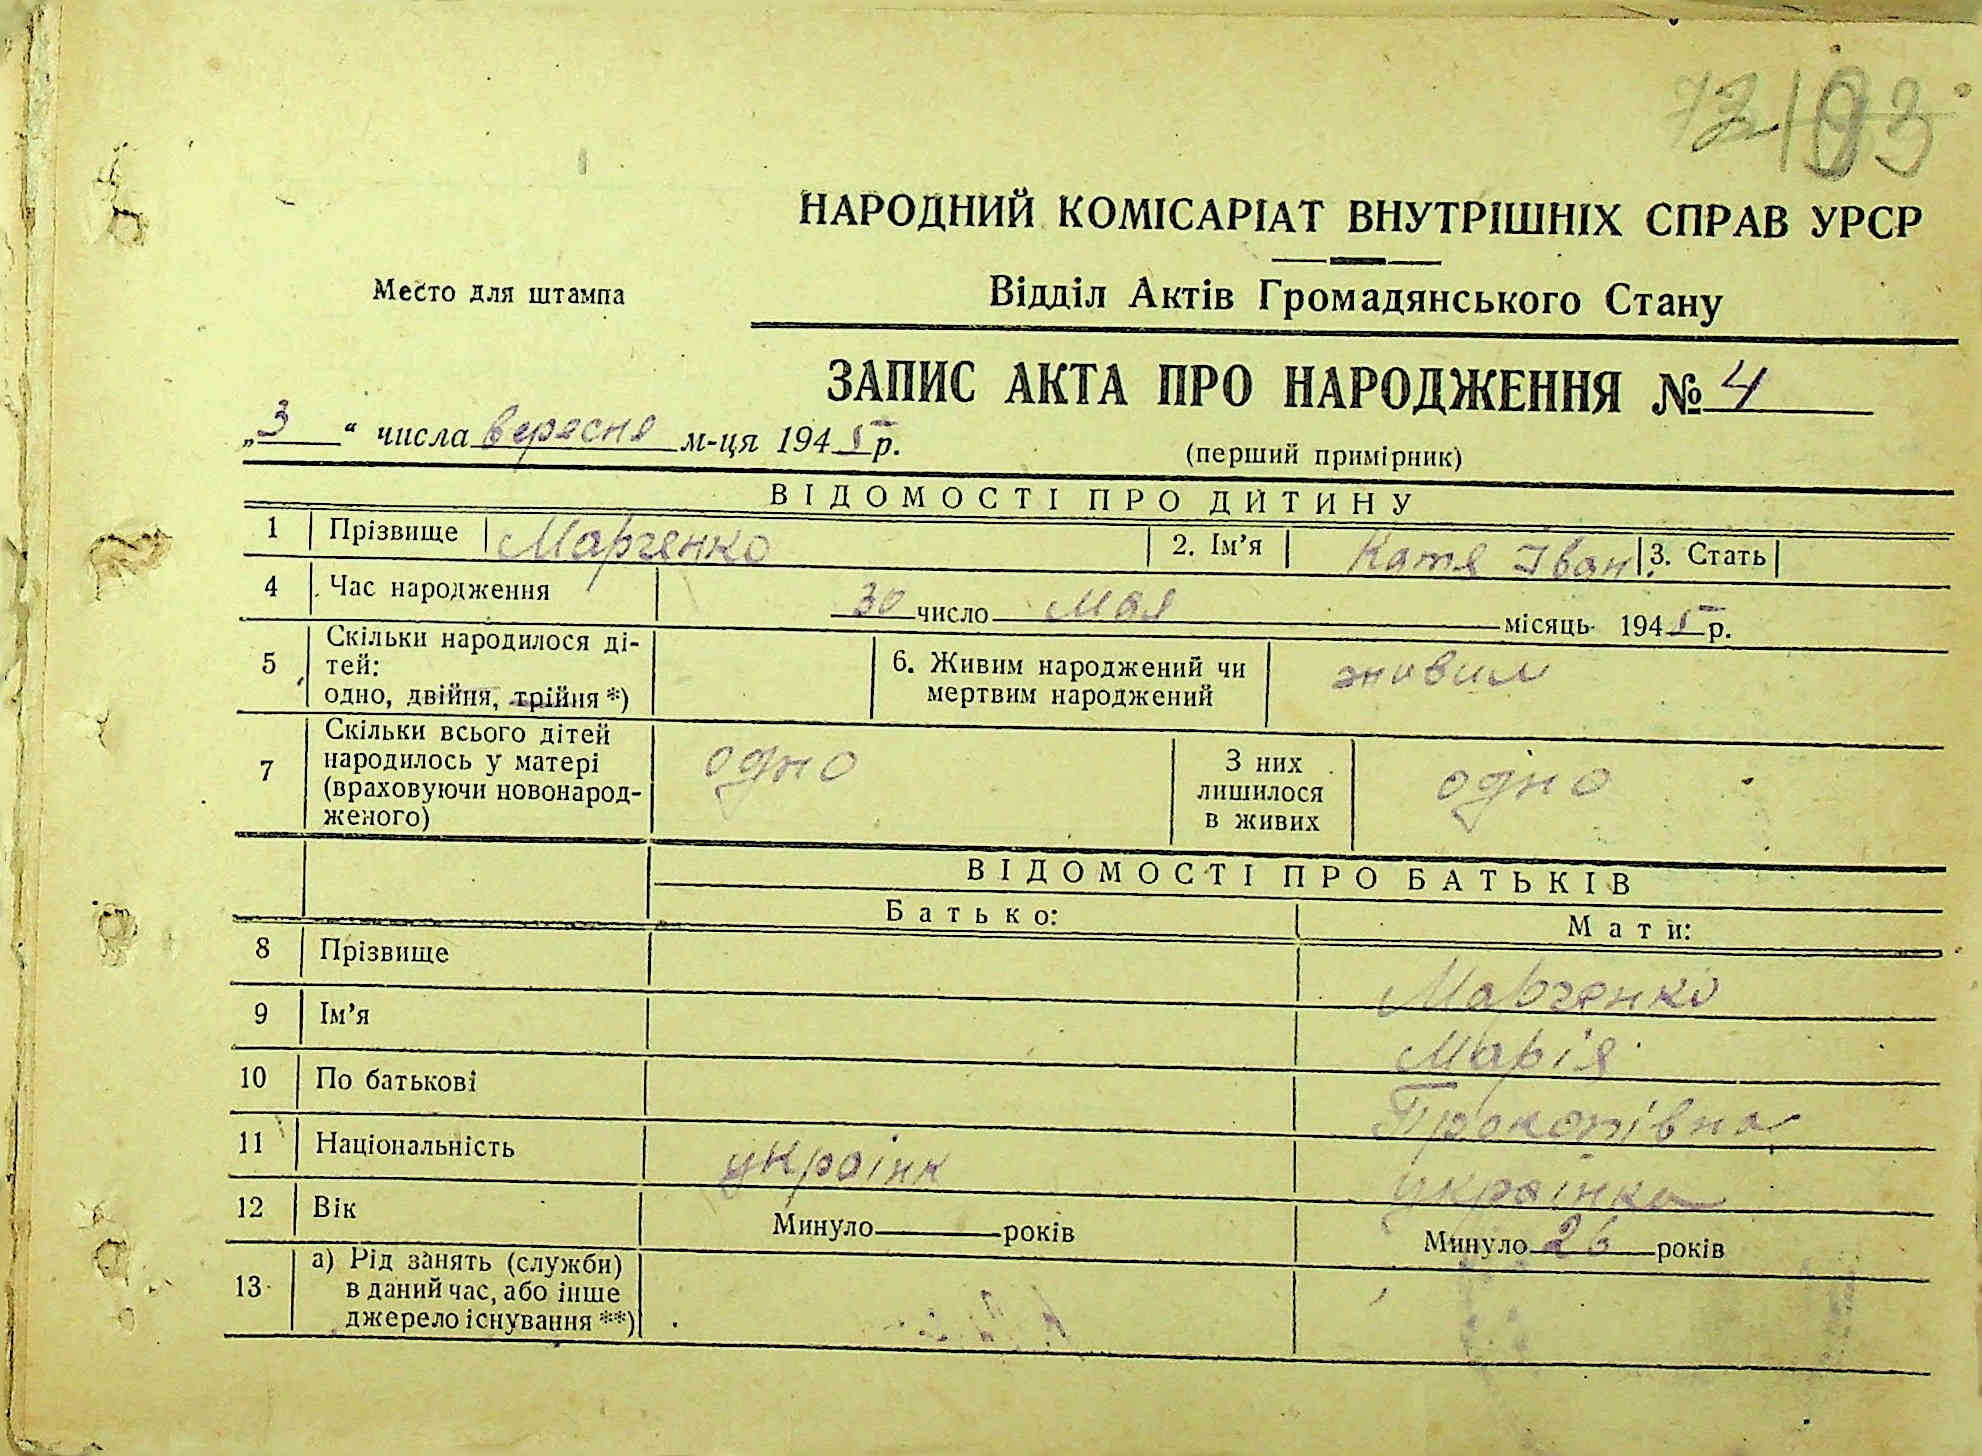 НАРОДНИЙ КОМІСАРІАТ ВНУТРІШНІХ СПРАВ УРСР
Место для штампа
Відділ Актів Громадянського Стану
ЗАПИС АКТА ПРО НАРОДЖЕННЯ № 4
„3“ числа вересня м-ця 1945 р.
(перший примірник)
ВІДОМОСТІ ПРО ДИТИНУ
1 Прізвище Марченко 2. Ім'я Катя Іван. 3. Стать
4 Час народження 30 число Мая місяць 1945 р.
5 Скільки народилося ді-
тей:
одно, двійня, трійня *)
6. Живим народжений чи
мертвим народжений
живим
7 Скільки всього дітей
народилось у матері
(враховуючи новонарод-
женого)
одно
З них
лишилося
в живих
одно
ВІДОМОСТІ ПРО БАТЬКІВ
Батько: Мати:
8 Прізвище Марченко
9 Ім'я Марія
10 По батькові Прокопівна
11 Національність українк українка
12 Вік Минуло років Минуло 26 років
13 а) Рід занять (служби)
в даний час, або інше
джерело існування **)